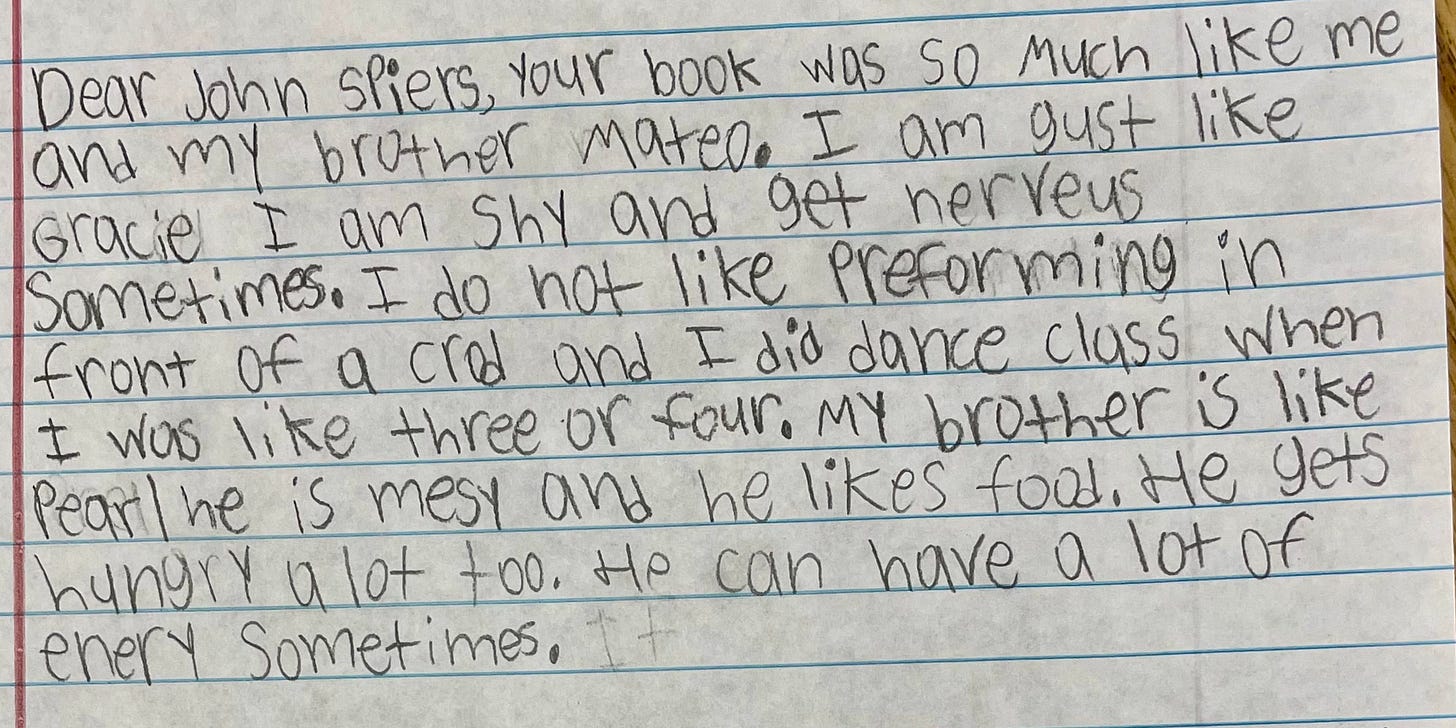 Dear John Spiers, your book was so much like me
and my brother Mateo. I am gust like
Gracie I am shy and get nerveus
Sometimes. I do not like preforming in
front of a crod and I did dance class when
I was like three or four. My brother is like
Pearl he is mesy and he likes food. He gets
hungry a lot too. He can have a lot of
enery Sometimes. It